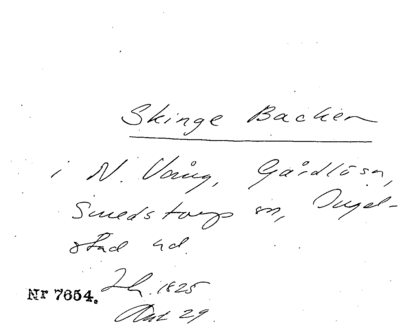 Skinge Backen
i N. Vång, Gårdlösa,
Smedstorps sn, Ingel-
stad hd.
1825
Nr 7654.
29